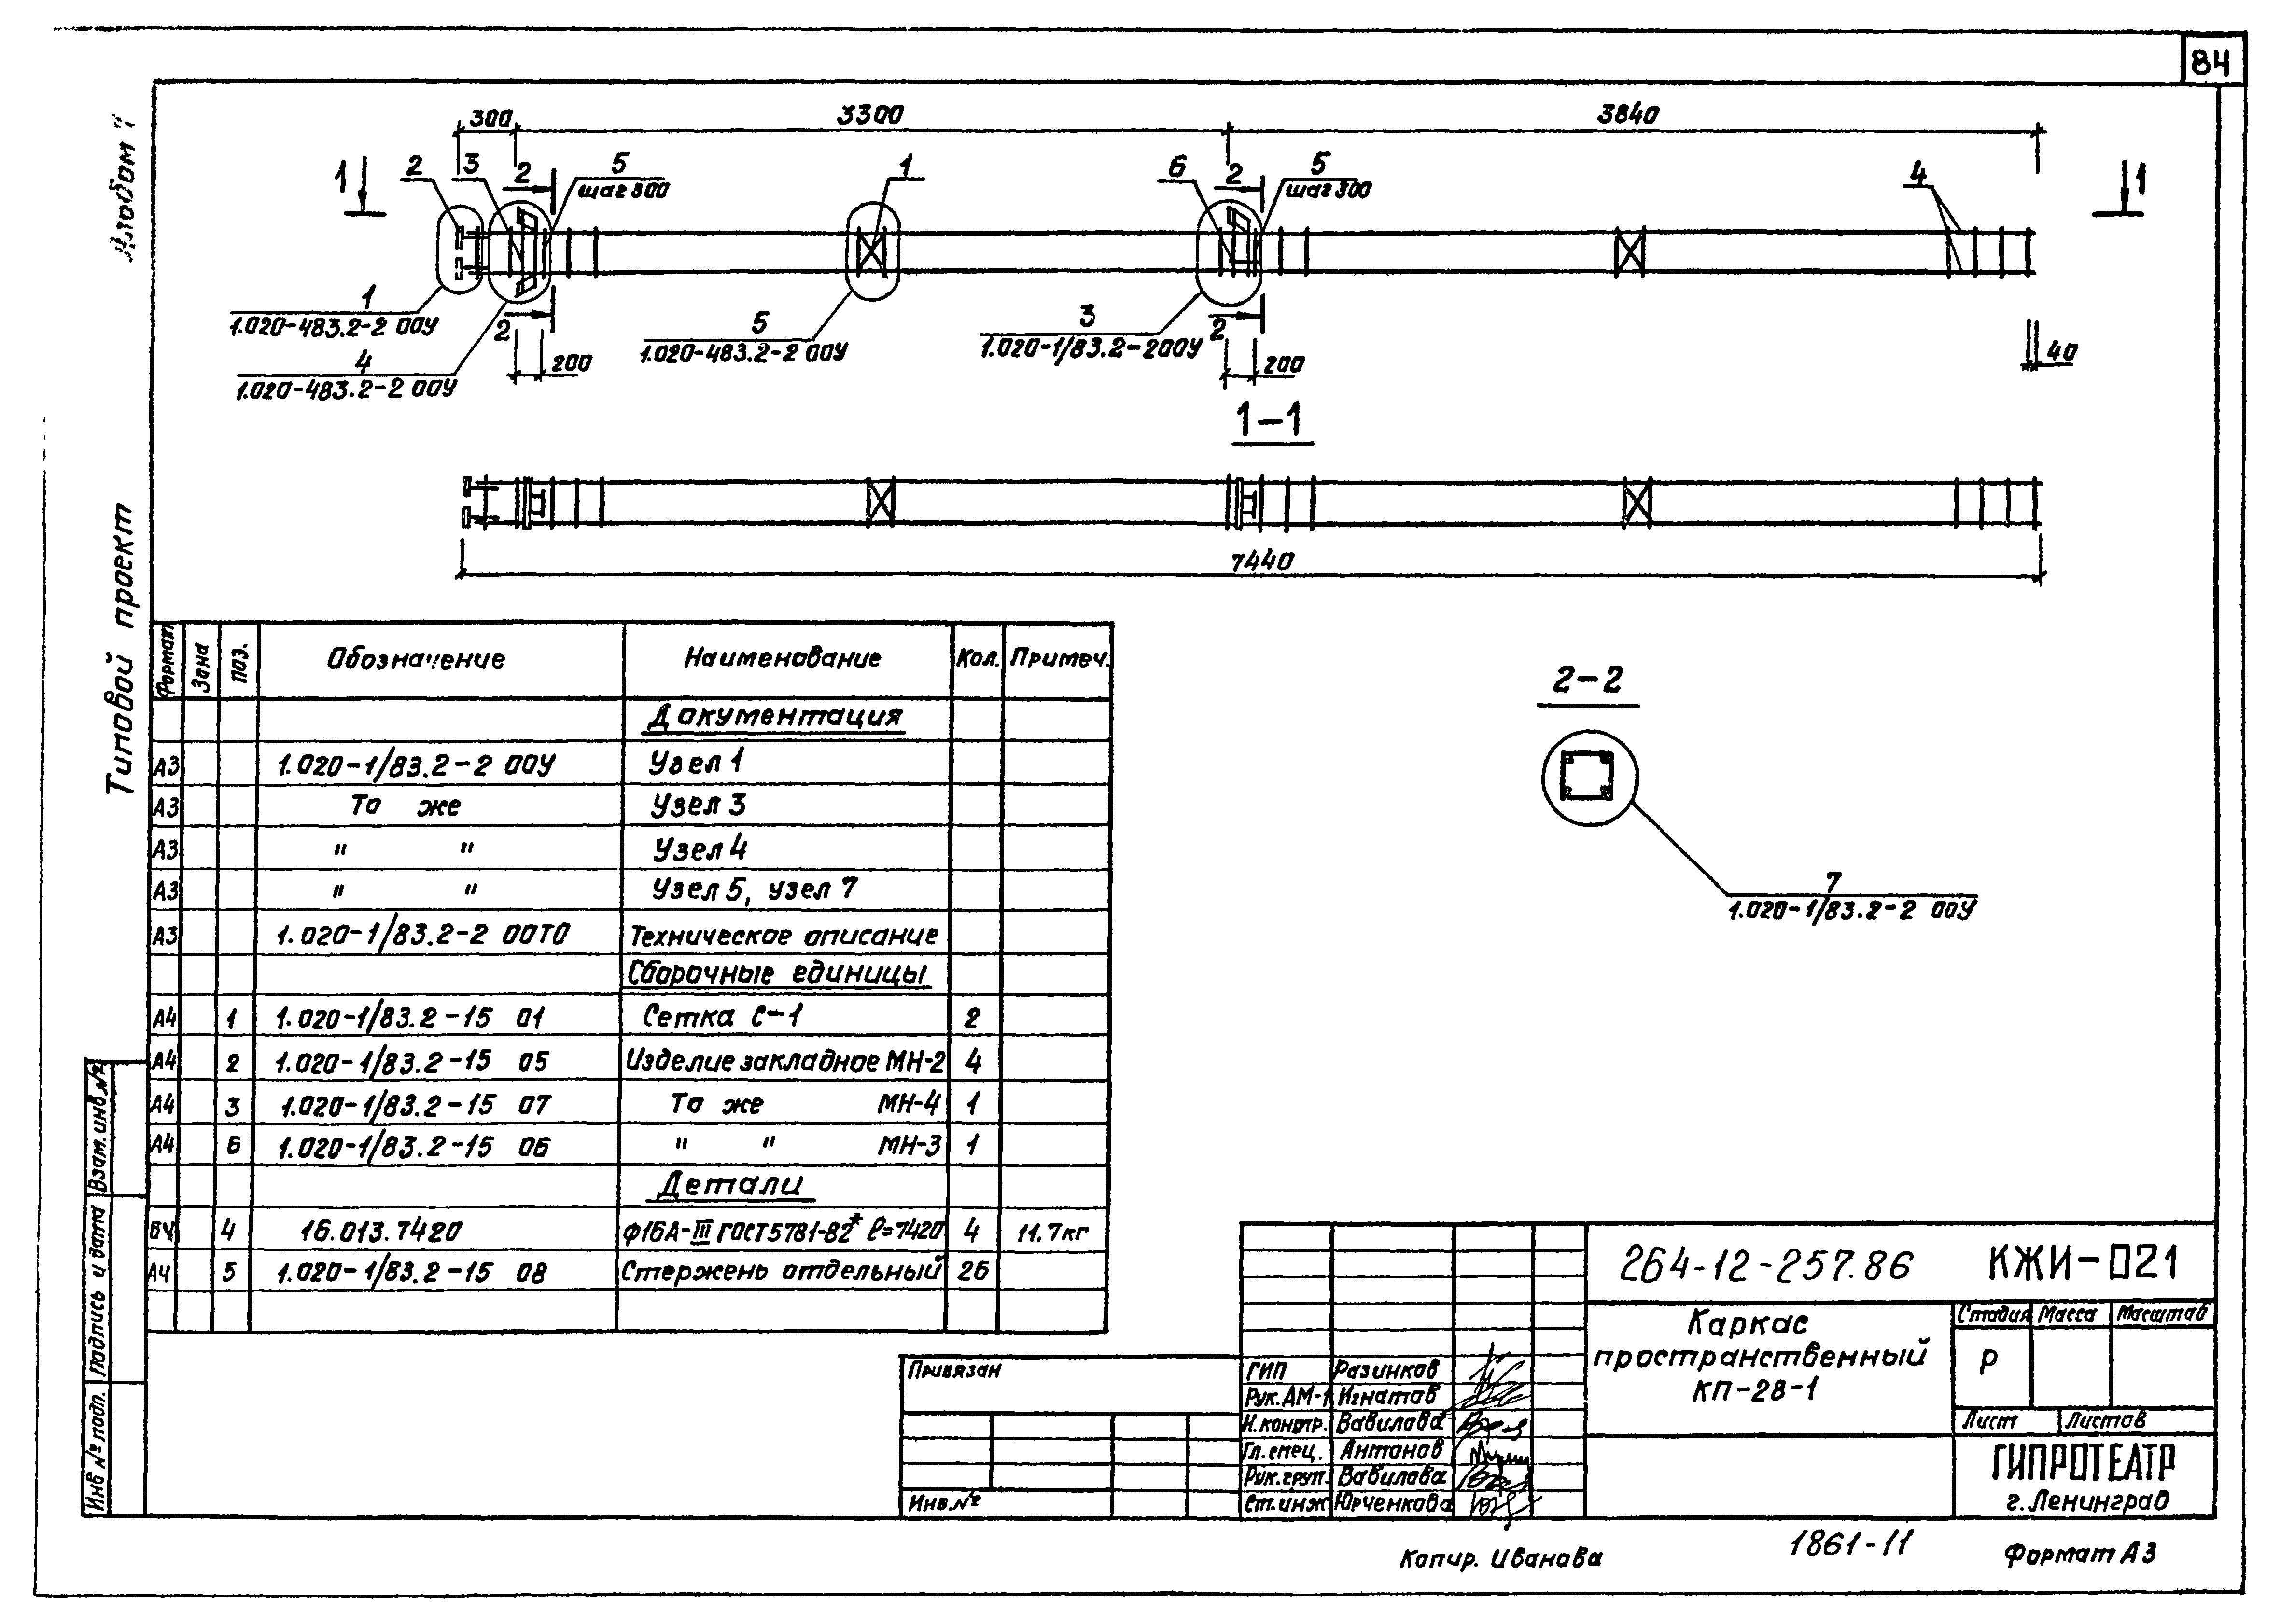 84
Альбом 7
Типовой проект
300 3300 3840
1 2 3 2 5 1 6 2 5 4 1
шаг 300 шаг 300
1
1.020-483.2-2 00У
4
1.020-483.2-2 00У
2
200
5
1.020-483.2-2 00У
3
1.020-1/83.2-200У
2
200
40
1-1
7440
2-2
7
1.020-1/83.2-2 00У
Формат Зона Поз. Обозначение Наименование Кол. Примеч.
Документация
А3 1.020-1/83.2-2 00У Узел 1
А3 То же Узел 3
А3 " " Узел 4
А3 " " Узел 5, узел 7
А3 1.020-1/83.2-2 00ТО Техническое описание
Сборочные единицы
А4 1 1.020-1/83.2-15 01 Сетка С-1 2
А4 2 1.020-1/83.2-15 05 Изделие закладное МН-2 4
А4 3 1.020-1/83.2-15 07 То же МН-4 1
А4 6 1.020-1/83.2-15 06 " " МН-3 1
Детали
БЧ 4 16.013.7420 ф16А-III ГОСТ5781-82* ℓ=7420 4 11.7кг
А4 5 1.020-1/83.2-15 08 Стержень отдельный 26
Взам. инв.№
Подпись и дата
Инв № подл.
Привязан
Инв.№
ГИП Разинков
Рук.АМ-1 Игнатов
Н.контр. Вавилова
Гл.спец. Антонов
Рук.груп. Вавилова
Ст.инж Юрченкова
264-12-257.86 КЖИ-021
Каркас
пространственный
КП-28-1
Стадия Масса Масштаб
Р
Лист Листов
ГИПРОТЕАТР
г.Ленинград
Копир. Иванова
1861-11
Формат А3